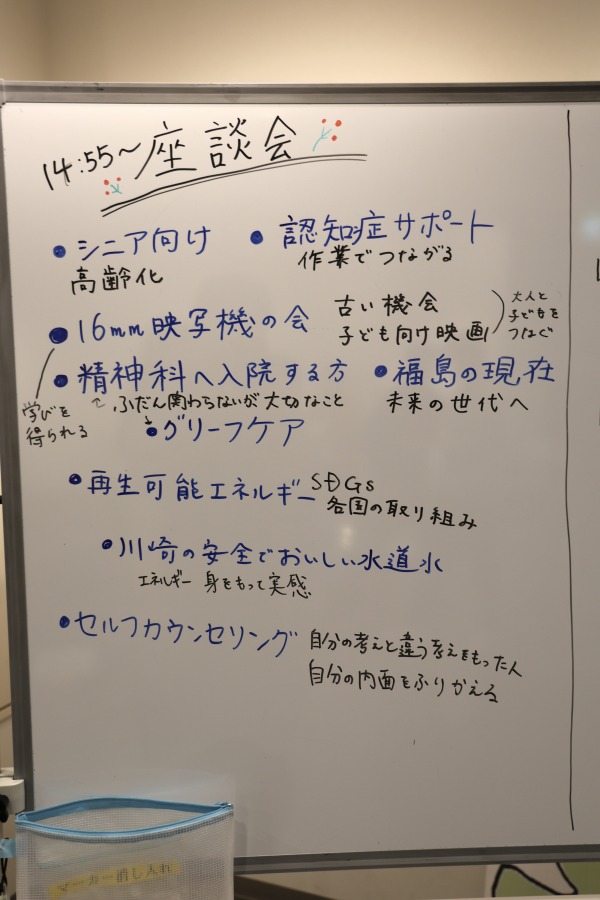 14:55～座談会
●シニア向け
高齢化
●認知症サポート
作業でつながる
●16mm映写機の会
古い機会
子ども向け映画
大人と
子どもを
つなぐ
●精神科へ入院する方
ふだん関わらないが大切なこと
学びを
得られる
●福島の現在
未来の世代へ
●グリーフケア
●再生可能エネルギー
SDGs
各国の取り組み
●川崎の安全でおいしい水道水
エネルギー 身をもって実感
●セルフカウンセリング
自分の考えと違う考えをもった人
自分の内面をふりかえる
マーカー消し入れ